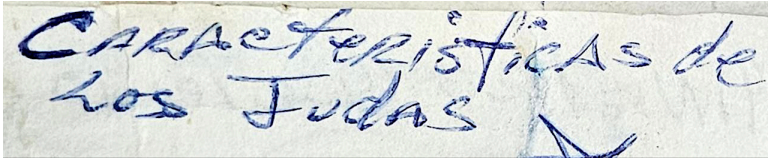 CARActeRisticAs de
Los JudAs